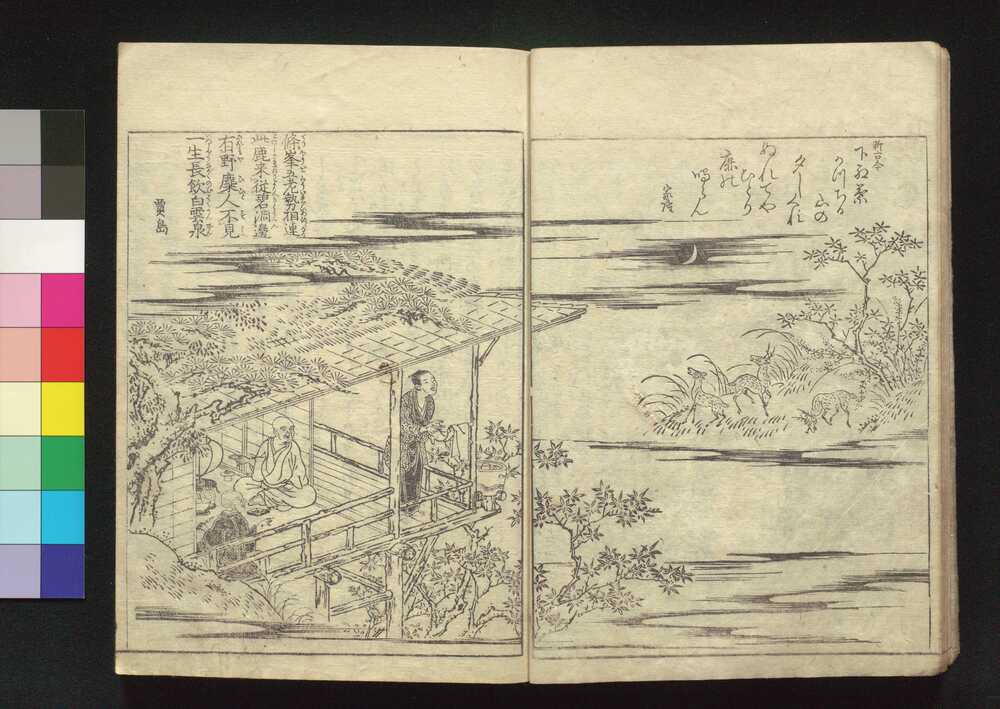 新古今
下紅葉
かつちる
山の
夕しくれ
ぬれてや
ひとり
鹿の
鳴らん
家隆
條峯五老勢相連
此鹿来従碧洞邊
右野麋人不見
一生長飲白雲泉
賈島